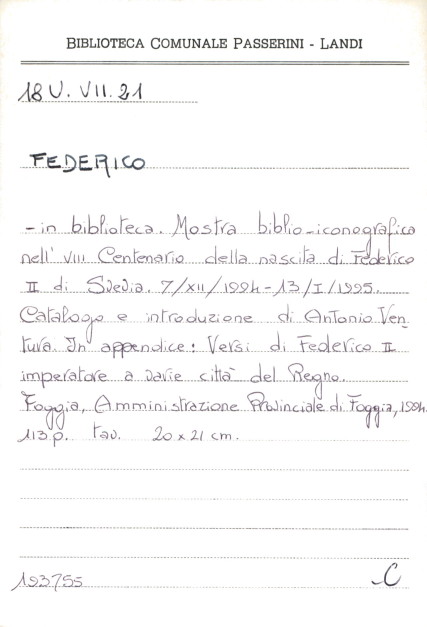 BIBLIOTECA COMUNALE PASSERINI - LANDI
18 U. VII. 21
FEDERICO
- in biblioteca. Mostra biblio-iconografica
nell' VIII Centenario della nascita di Federico
II di Svevia. 7/XII/1994-13/I/1995.
Catalogo e introduzione di Antonio Ven-
tura. In appendice: Versi di Federico II
imperatore a varie città del Regno.
Foggia, Amministrazione Provinciale di Foggia, 1994.
113 p. tav. 20 x 21 cm.
193755 C